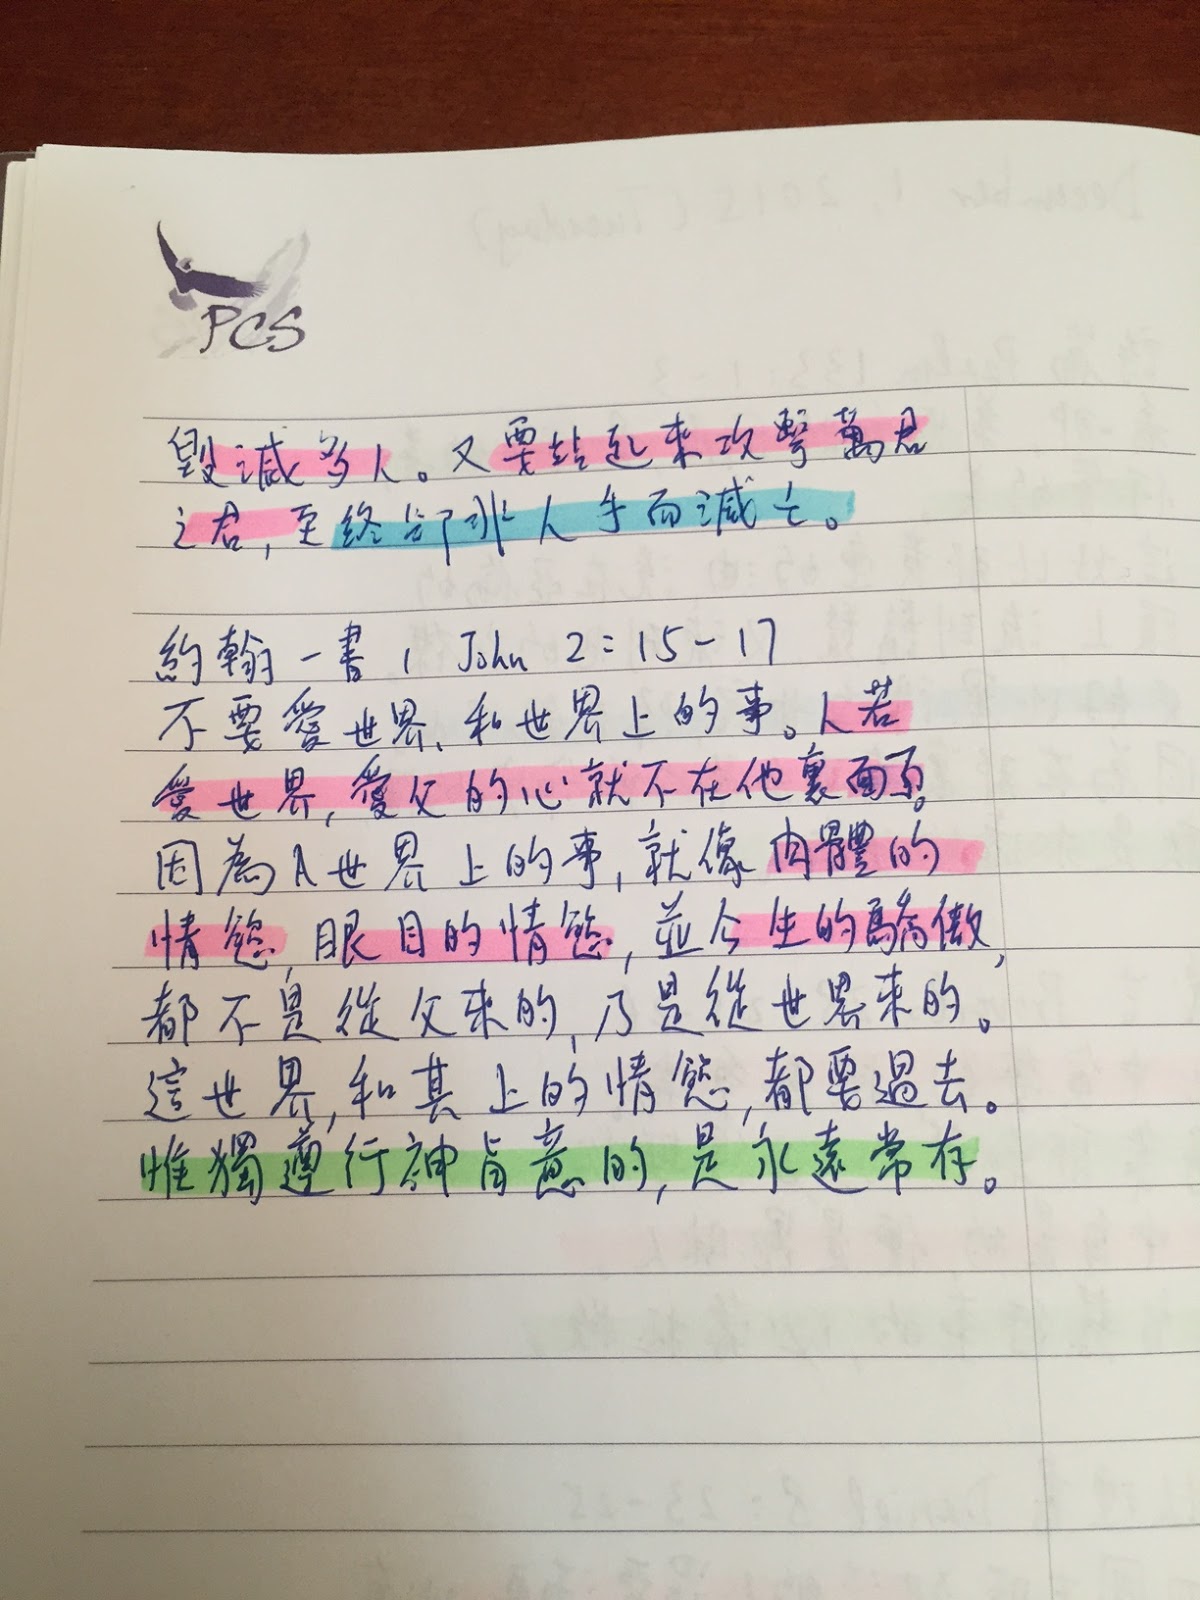 PCS
毀滅多人。又要站起來攻擊萬君
之君, 至終卻非人手而滅亡。
約翰一書 1 John 2:15-17
不要愛世界、和世界上的事。人若
愛世界, 愛父的心就不在他裏面了。
因為凡世界上的事, 就像肉體的
情慾, 眼目的情慾, 並今生的驕傲,
都不是從父來的, 乃是從世界來的。
這世界, 和其上的情慾, 都要過去。
惟獨遵行神旨意的, 是永遠常存。